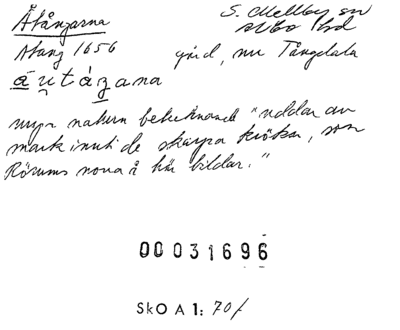 Åtångarna
S. Mellby sn
Albo hd
Atang 1656
gård, nu Tångdala
åu̯táŋana
mypn naturn betecknande "uddar av
mark inuti de skarpa krökar, som
Rörums norra å här bildar."
00031696
SkO A 1: 70/